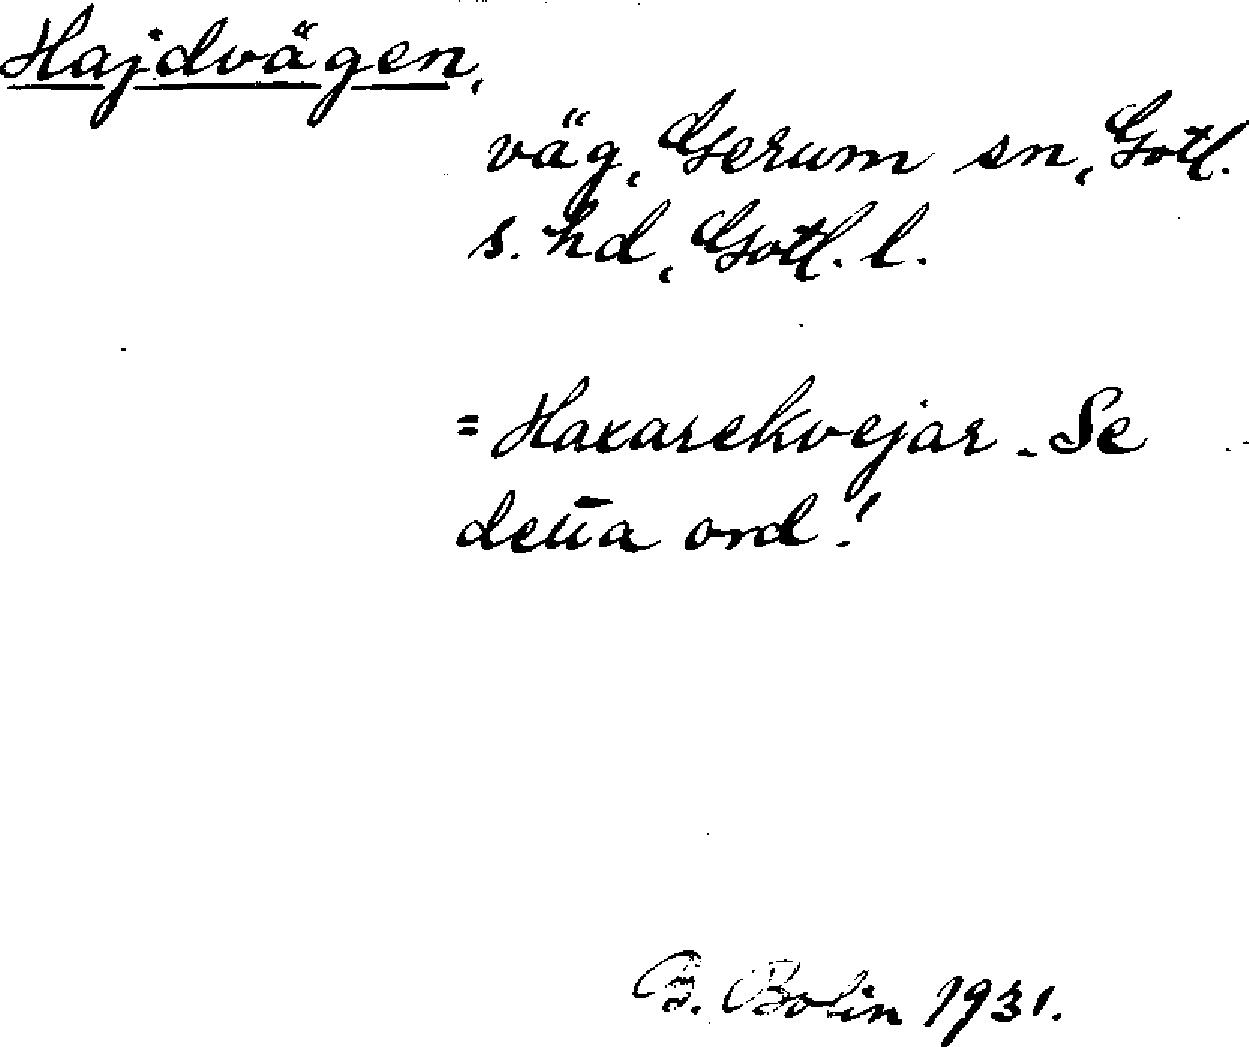 Hajdvägen,
väg, Gerum sn, Gotl.
s. hd, Gotl. l.
= Haxarekvejar. Se
detta ord!
B. Bolin 1931.